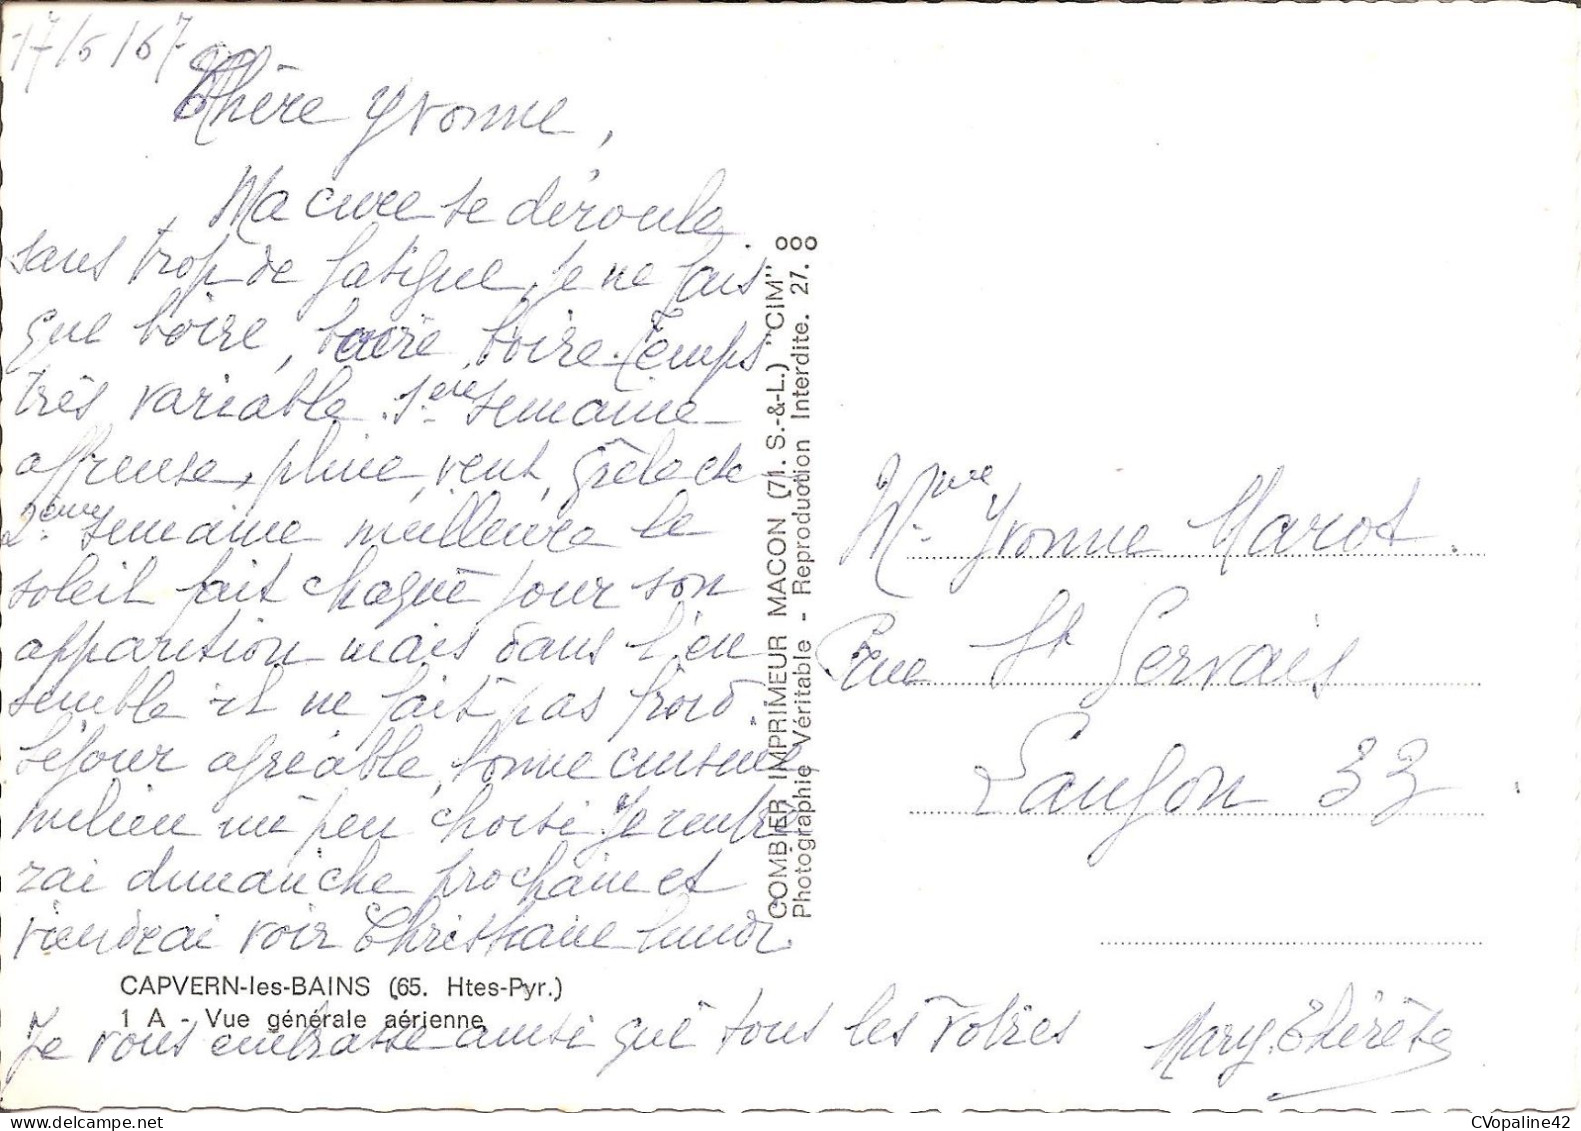 17/5/67
Chère Yvonne,
Ma cure se déroule
sans trop de fatigue, je ne fais
que boire, boire, boire. Temps
très variable. 1ère semaine
affreuse, pluie, vent, grêle etc
2ème semaine meilleure le
soleil fait chaque jour son
apparition mais dans l'en
semble il ne fait pas froid.
Séjour agréable, bonne cuisine,
milieu un peu choisi. Je rentre
rai dimanche prochain et
viendrai voir Christiane lundi.
Je vous embrasse ainsi que tous les vôtres Mary. Thérèse
CAPVERN-les-BAINS (65. Htes-Pyr.)
1 A - Vue générale aérienne
COMBIER IMPRIMEUR MACON (71. S.-&-L.) "CIM"
Photographie Véritable - Reproduction Interdite. 27.
Mme Yvonne Marot.
Rue St Gervais
Langon 33
CVopaline42